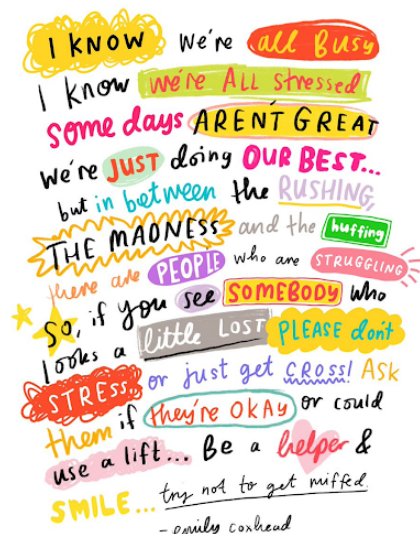 I KNOW We're all Busy
I know we're All stressed
some days AREN'T GREAT
we're JUST doing OUR BEST...
but in between the RUSHING,
THE MADNESS and the huffing
there are PEOPLE who are STRUGGLING
So, if you see SOMEBODY who
looks a little LOST PLEASE don't
STRESS or just get CROSS! Ask
them if they're OKAY or could
use a lift... Be a helper &
SMILE... try not to get miffed.
- emily coxhead